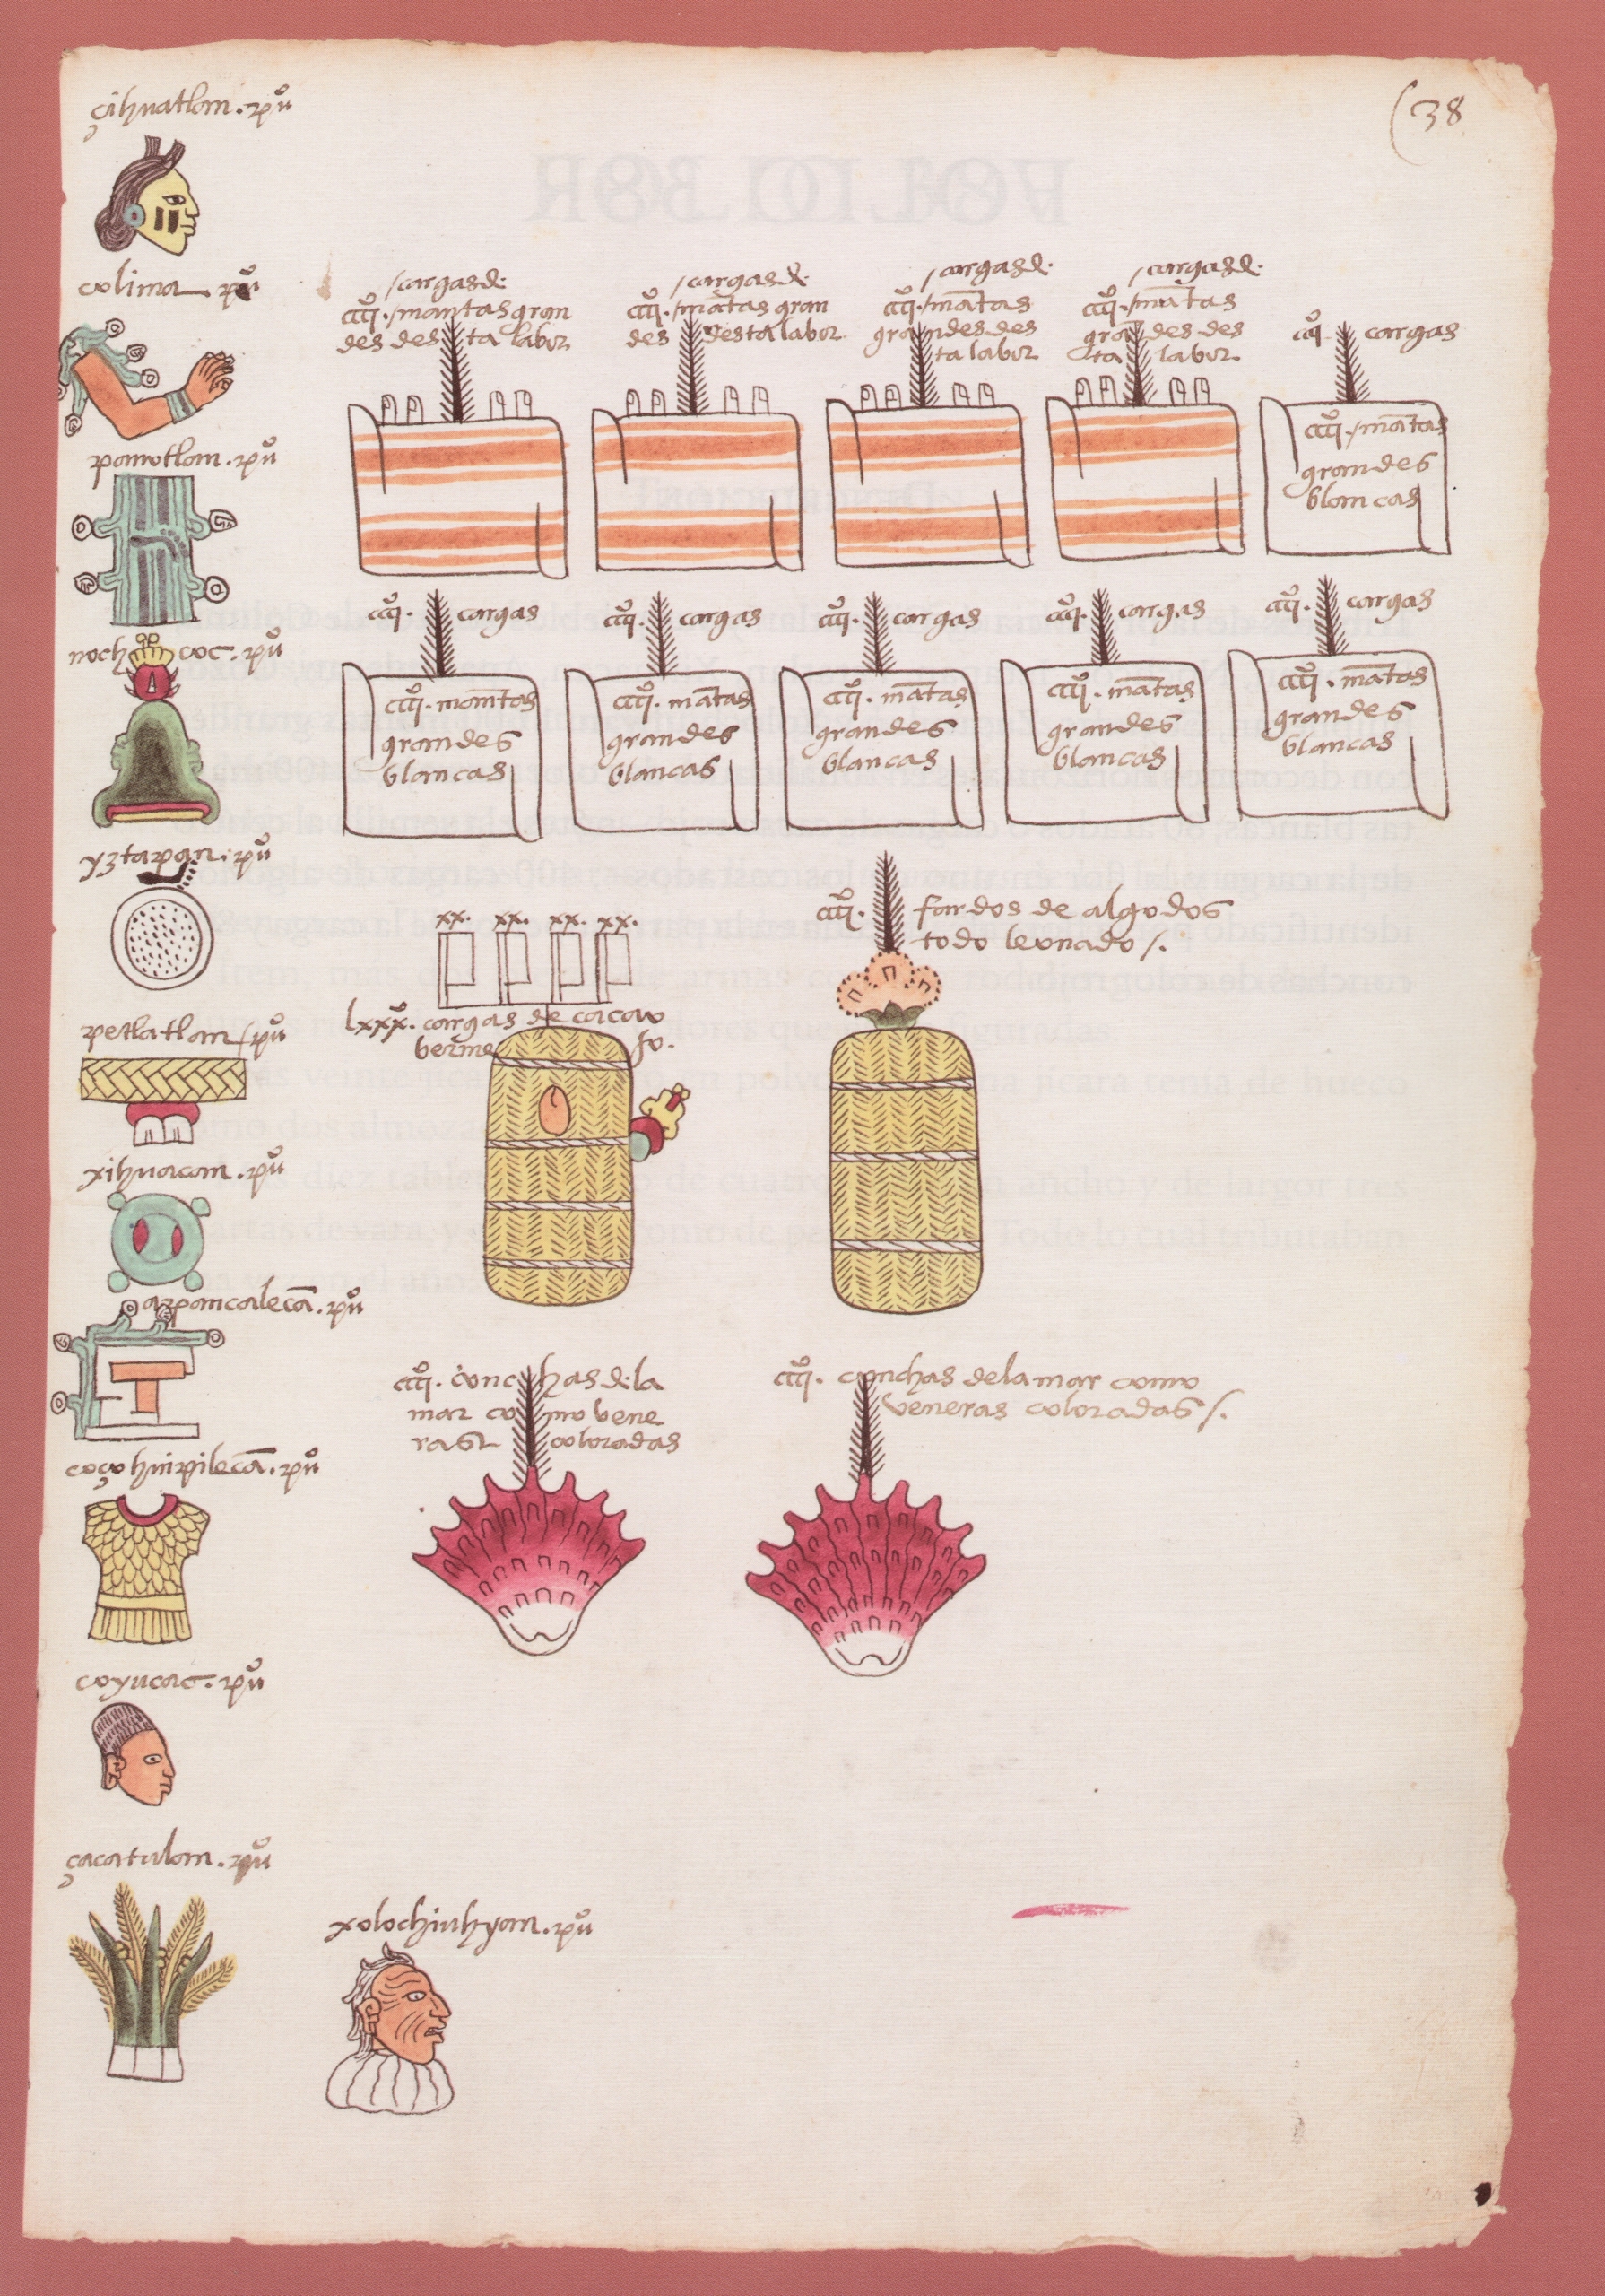 (38
çihuatlan . puº
colima . puº
panotlan . puº
nochcoc . puº
yztapan . puº
petlatlan / puº
xihuacan . puº
apancalecā . puº
coçohuipilecā . puº
coyucac . puº
çacatulan . puº
xolochiuhyan . puº
/ cargas de .
cccc . / mantas gran
des desta labor
/ cargas de .
cccc . / mātas gran
des desta labor .
/ cargas de .
cccc . / mātas
grandes des
ta labor
/ cargas de .
cccc . / mātas
grādes des
ta labor .
cccc . cargas
cccc . / mātas
grandes
blancas
cccc . cargas
cccc . mantas
grandes
blancas
cccc . cargas
cccc . mātas
grandes
blancas
cccc . cargas
cccc . mātas
grandes
blancas
cccc . cargas
cccc . mātas
grandes
blancas
cccc . cargas
cccc . mātas
grandes
blancas
xx. xx. xx. xx.
lxxx . cargas de cacao
bermejo .
cccc . fardos de algodos
todo leonado / .
cccc . conchas de la
mar como vene
ras coloradas
cccc . conchas de la mar como
veneras coloradas / .